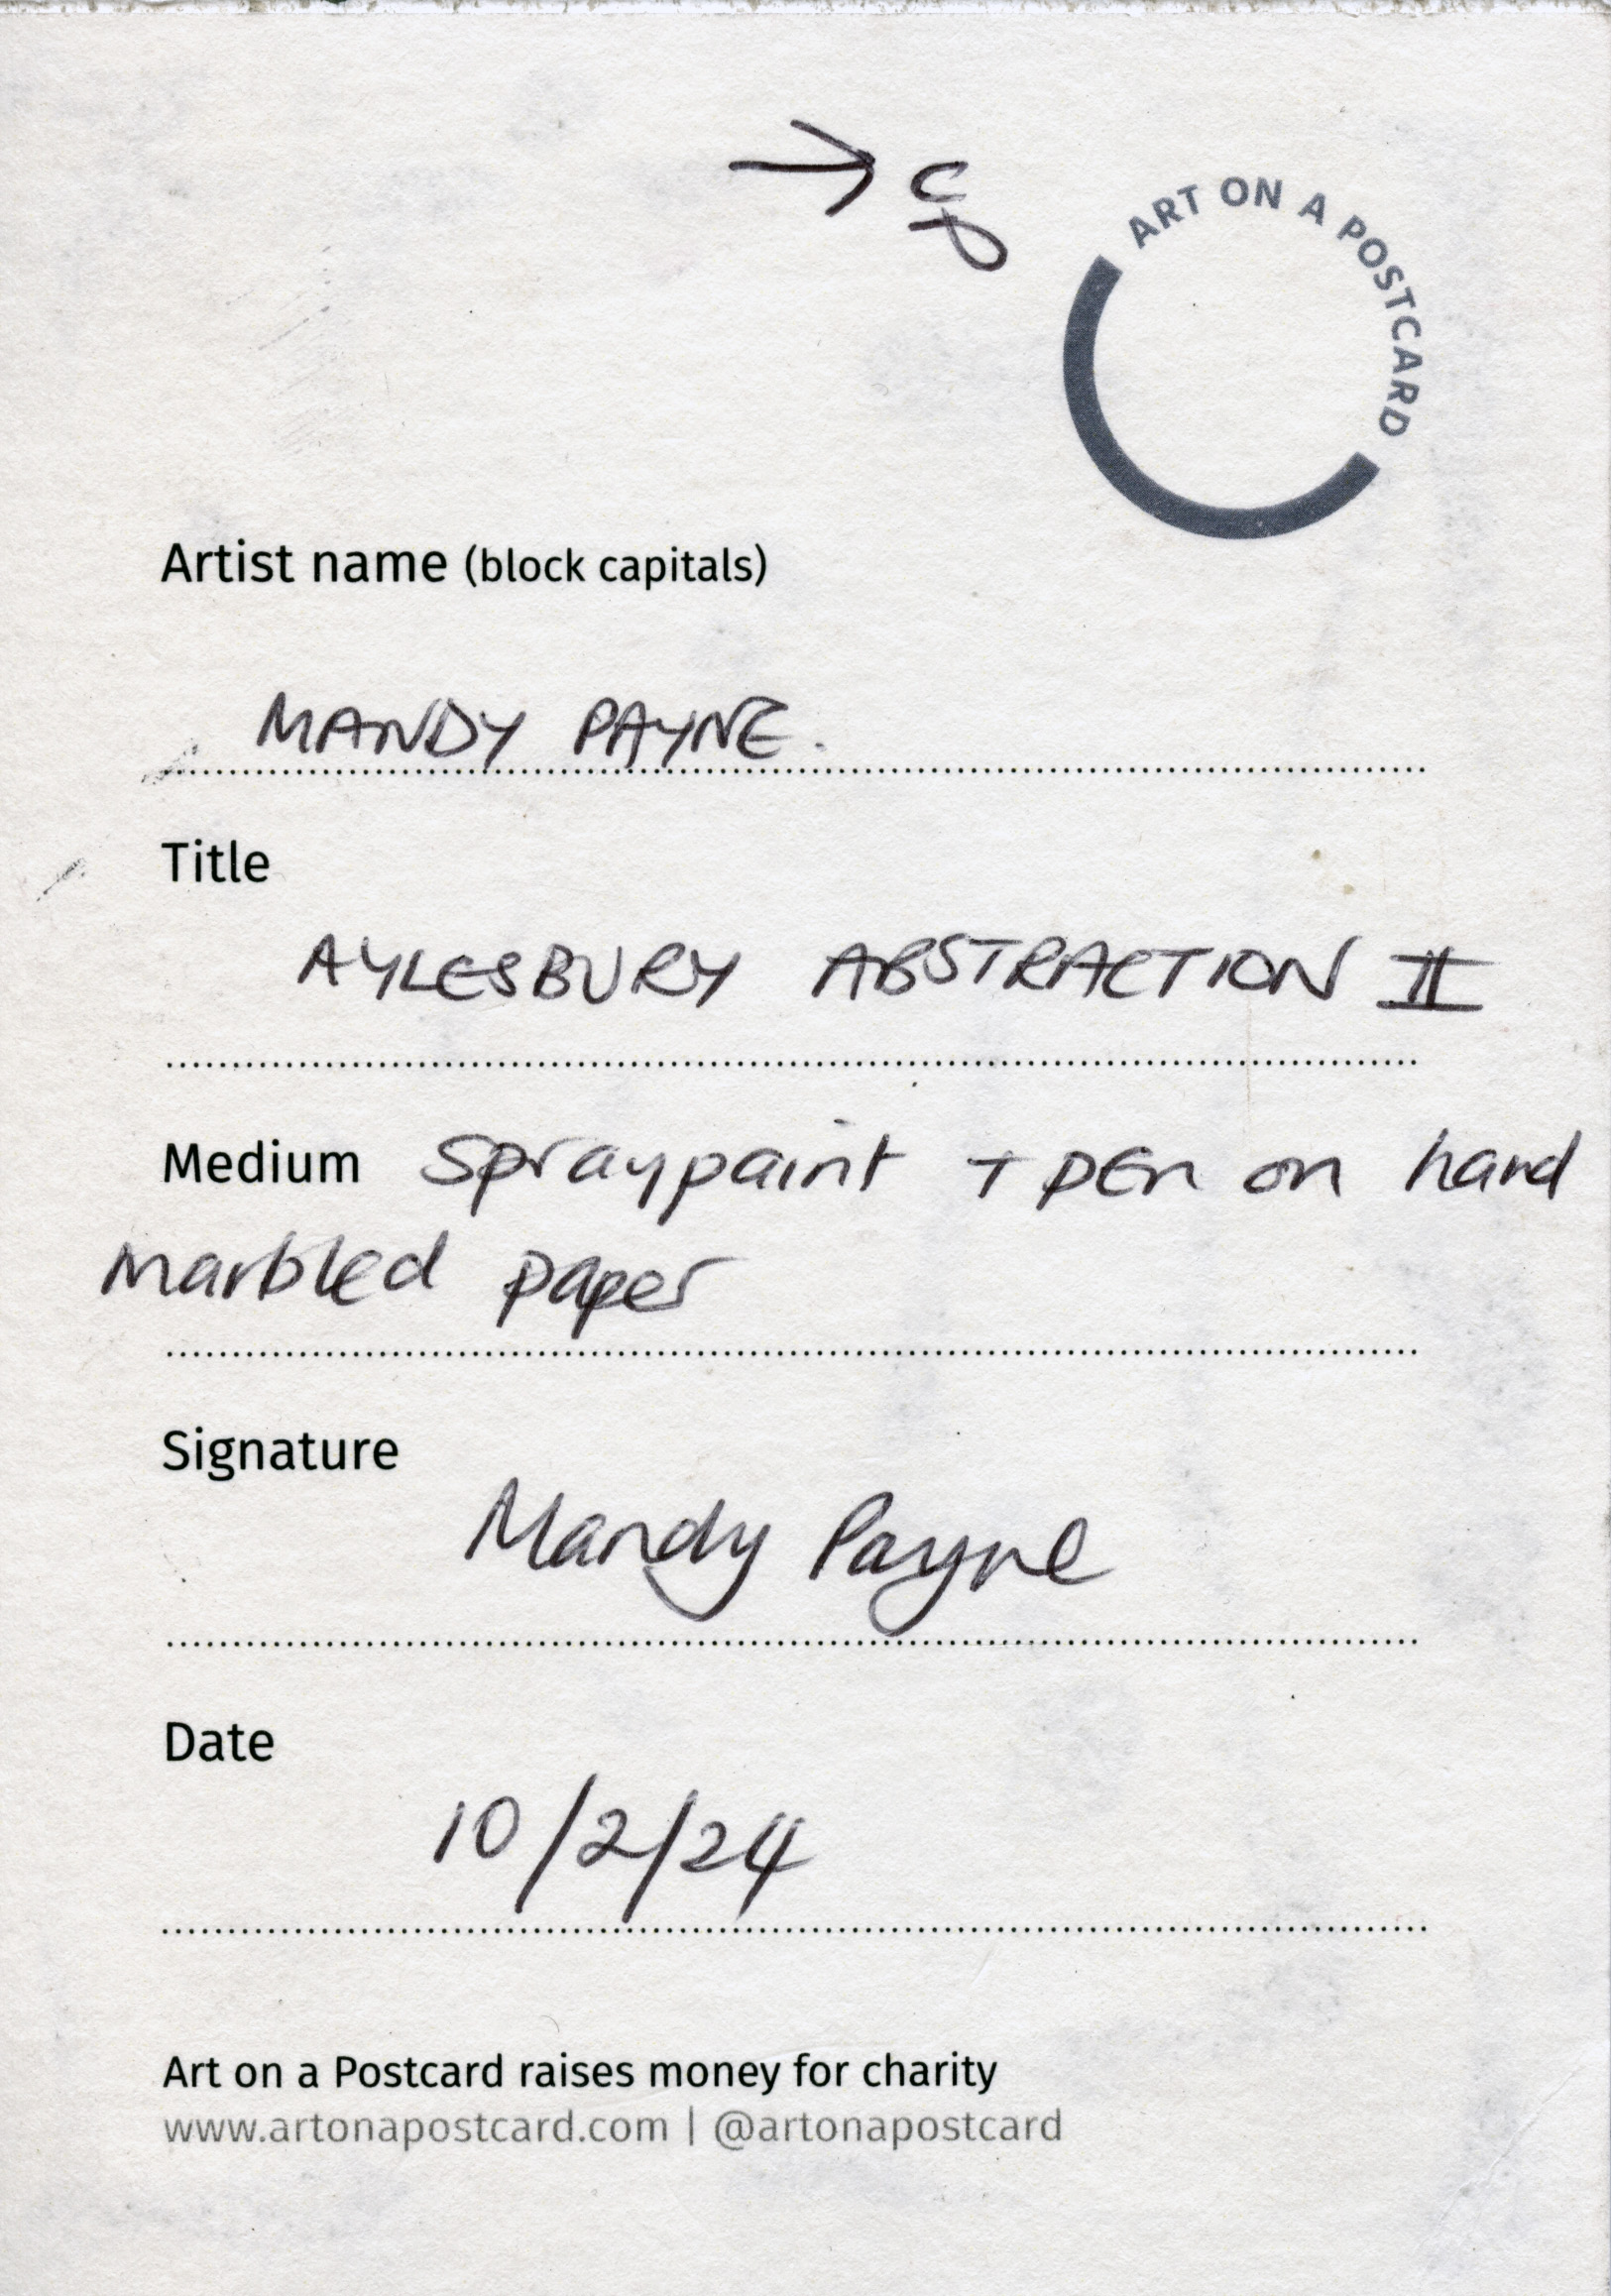 ART ON A POSTCARD
Artist name (block capitals)
MANDY PAYNE.
Title
AYLESBURY ABSTRACTION II
Medium Spraypaint + pen on hand
marbled paper
Signature
Mandy Payne
Date
10/2/24
Art on a Postcard raises money for charity
www.artonapostcard.com | @artonapostcard